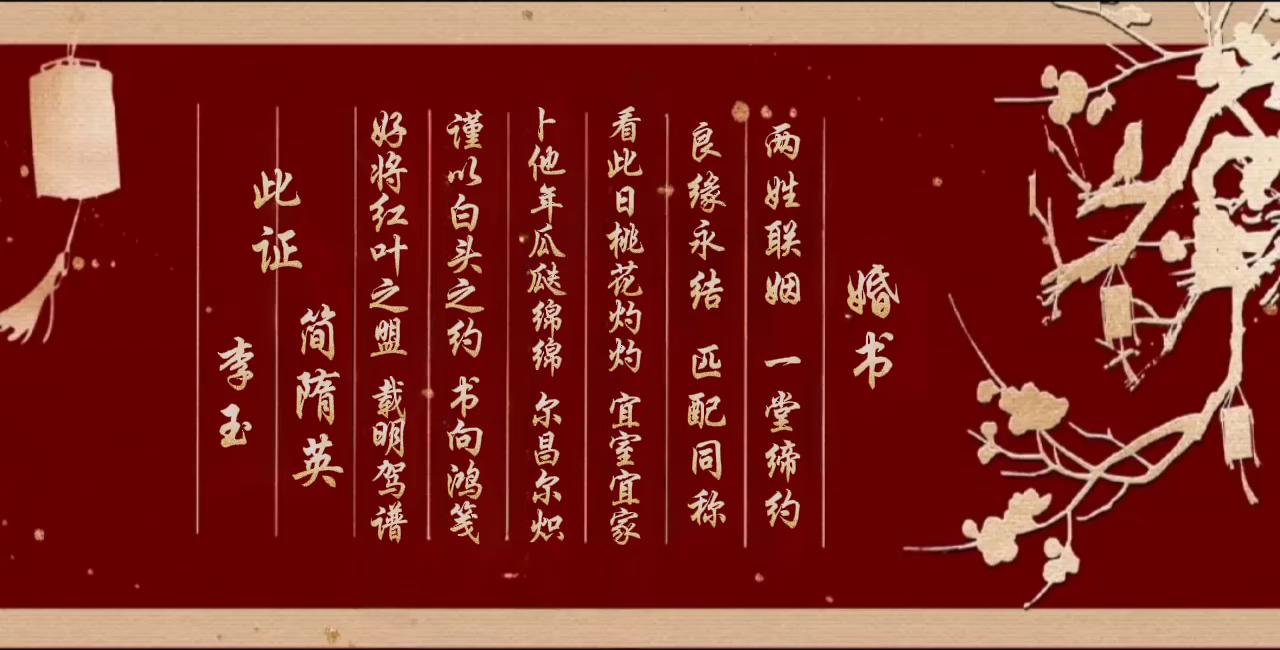 婚书
两姓联姻 一堂缔约
良缘永结 匹配同称
看此日桃花灼灼 宜室宜家
卜他年瓜瓞绵绵 尔昌尔炽
谨以白头之约 书向鸿笺
好将红叶之盟 载明驾谱
此证
简隋英
李玉